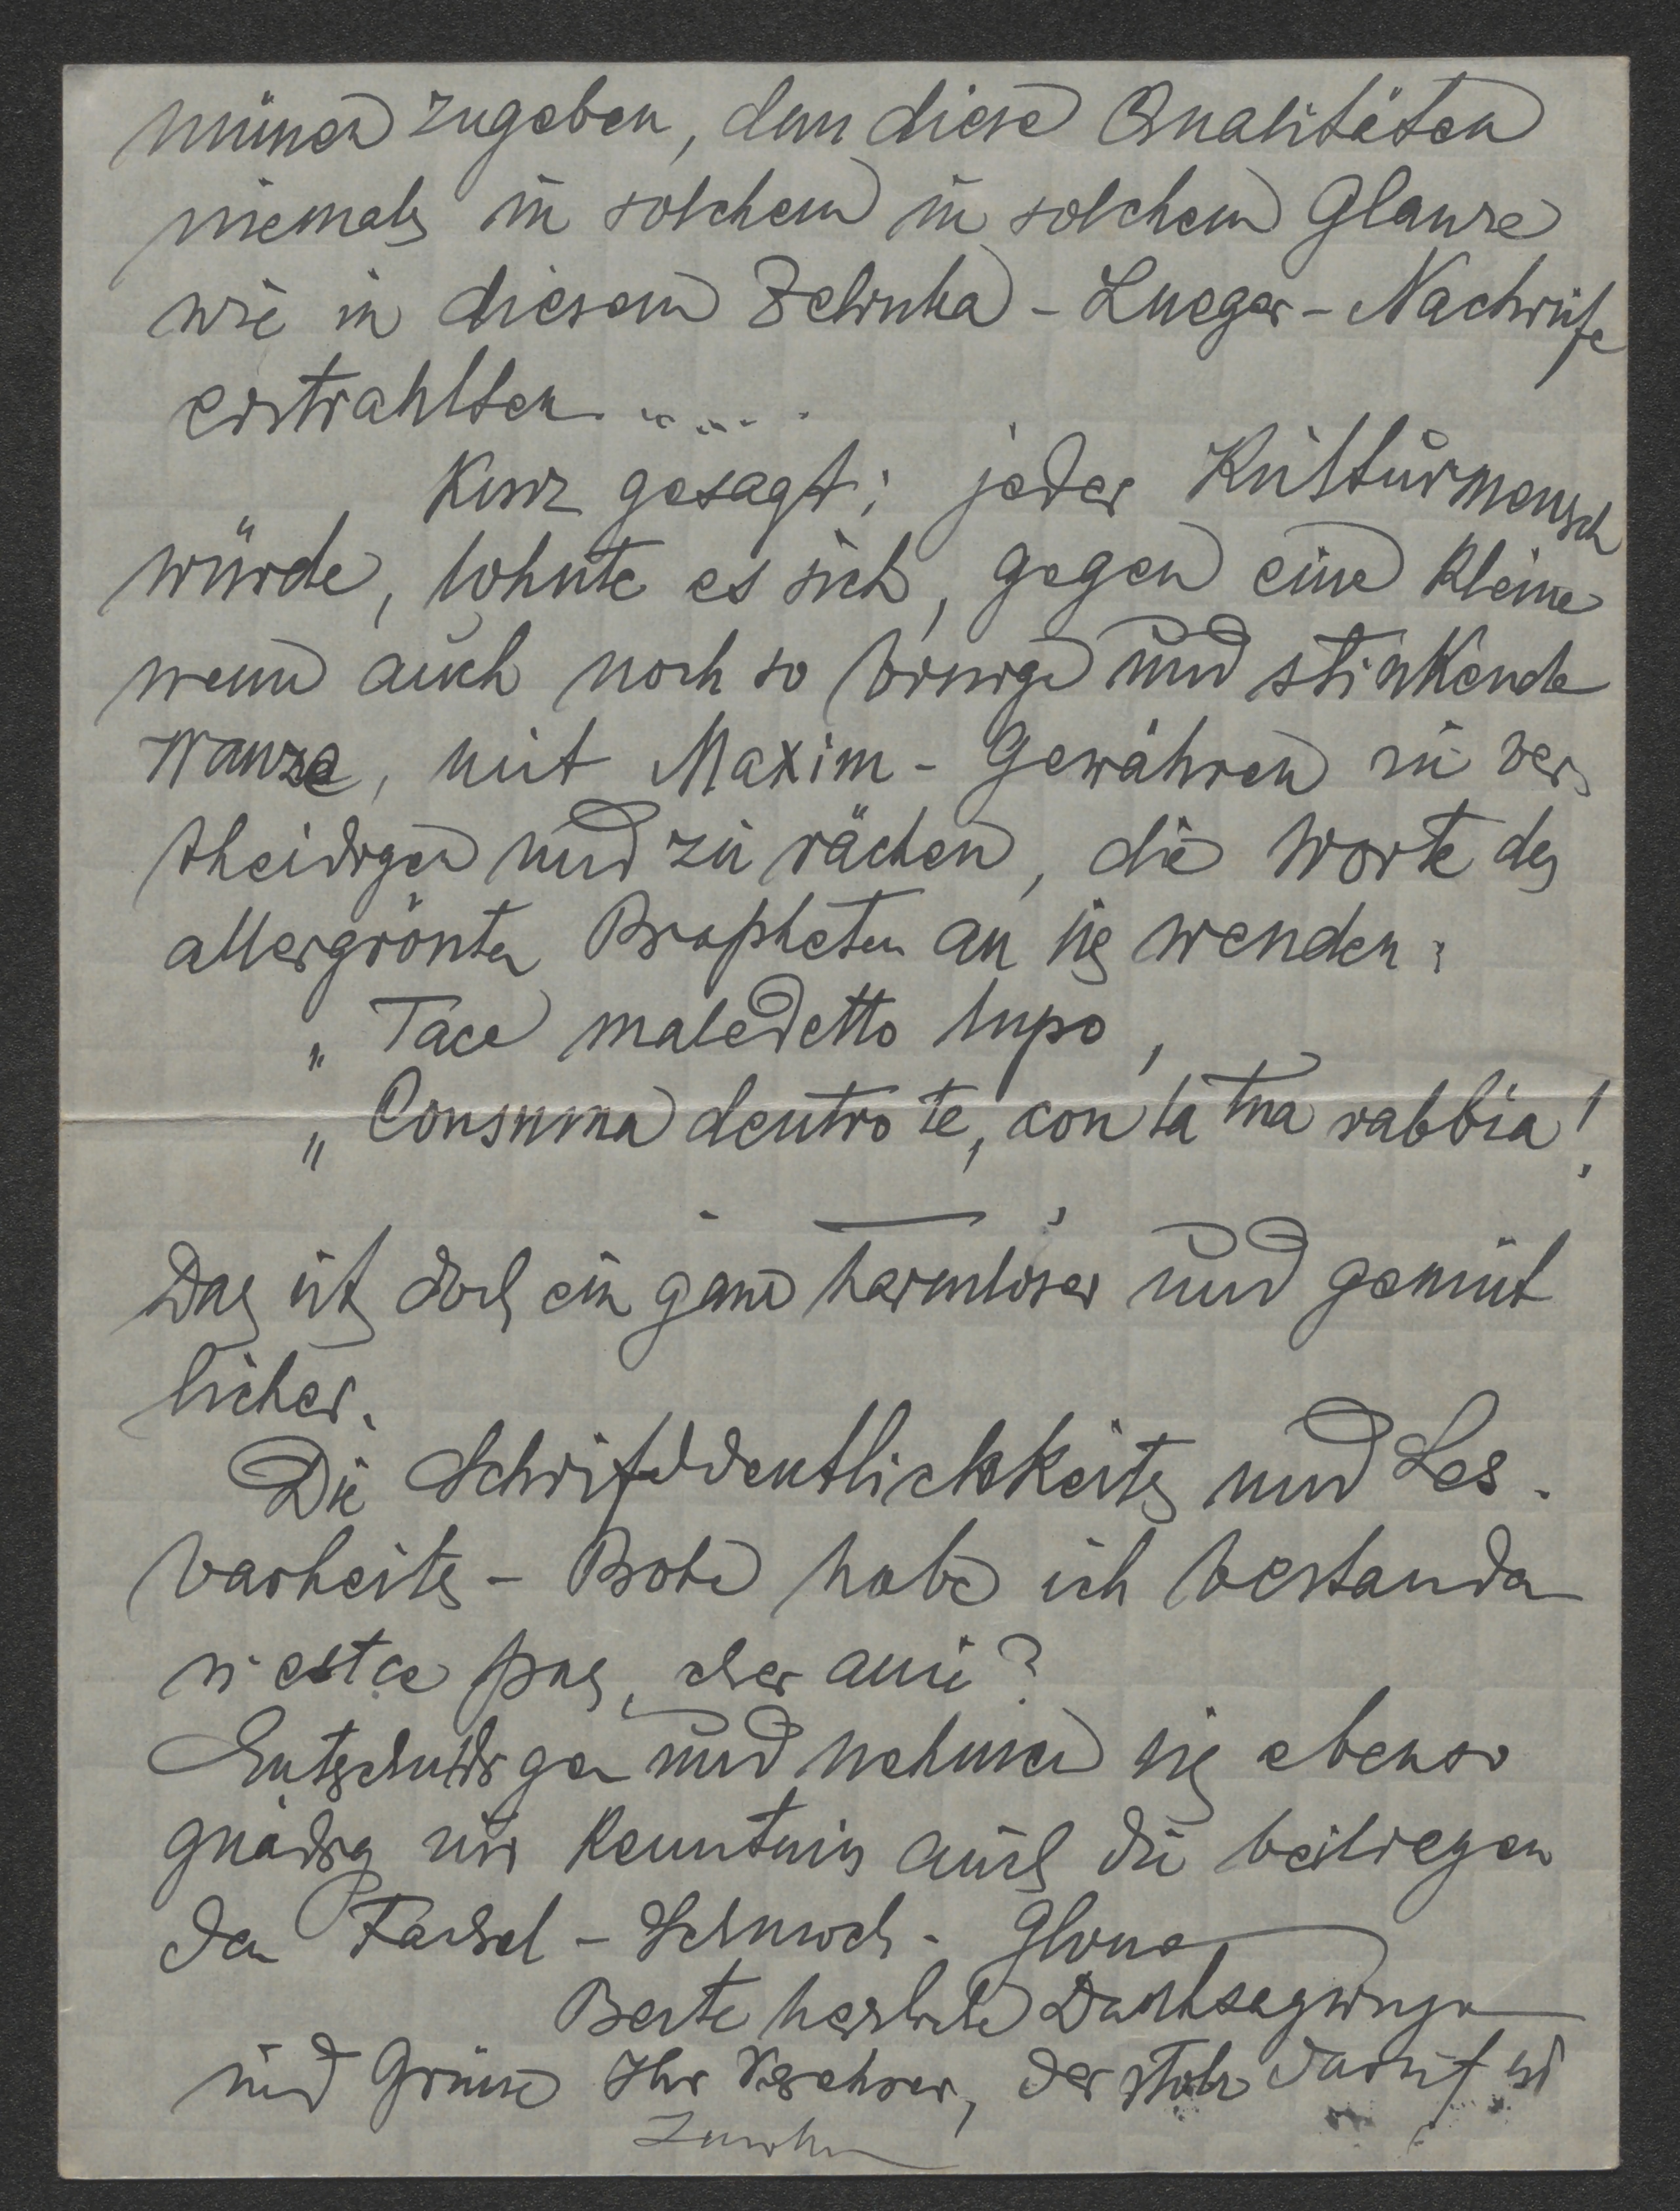 müssen zugeben, dass diese Qualitäten
niemals in solchem in solchem Glanze
wie in diesem Zelinka - Lueger - Nachrufe
erstrahlten.....
Kurz gesagt: jeder Kulturmensch
würde, lohnte es sich, gegen eine kleine
wenn auch noch so bissige und stinkende
Wanze, mit Maxim - Gewähren zu ver
theidigen und zu rächen, die Worte des
allergrössten Propheten an sie wenden:
„Tace maledetto lupo,
„Consuma dentro te, con la tua rabbia!
Das ist doch ein ganz harmloser und gemüt
licher.
Die Schriftdeutlichkeits und Les-
barkeits - Probe habe ich bestanden
n'est ce pas, cher ami?
Entschuldigen und nehmen sie ebenso
gnädig zur Kenntnis auch die beiliegen
den Fackel - Schmock - Glossen
Beste herzliche Danksagungen
und Grüsse Ihr Verehrer, der stolz darauf ist